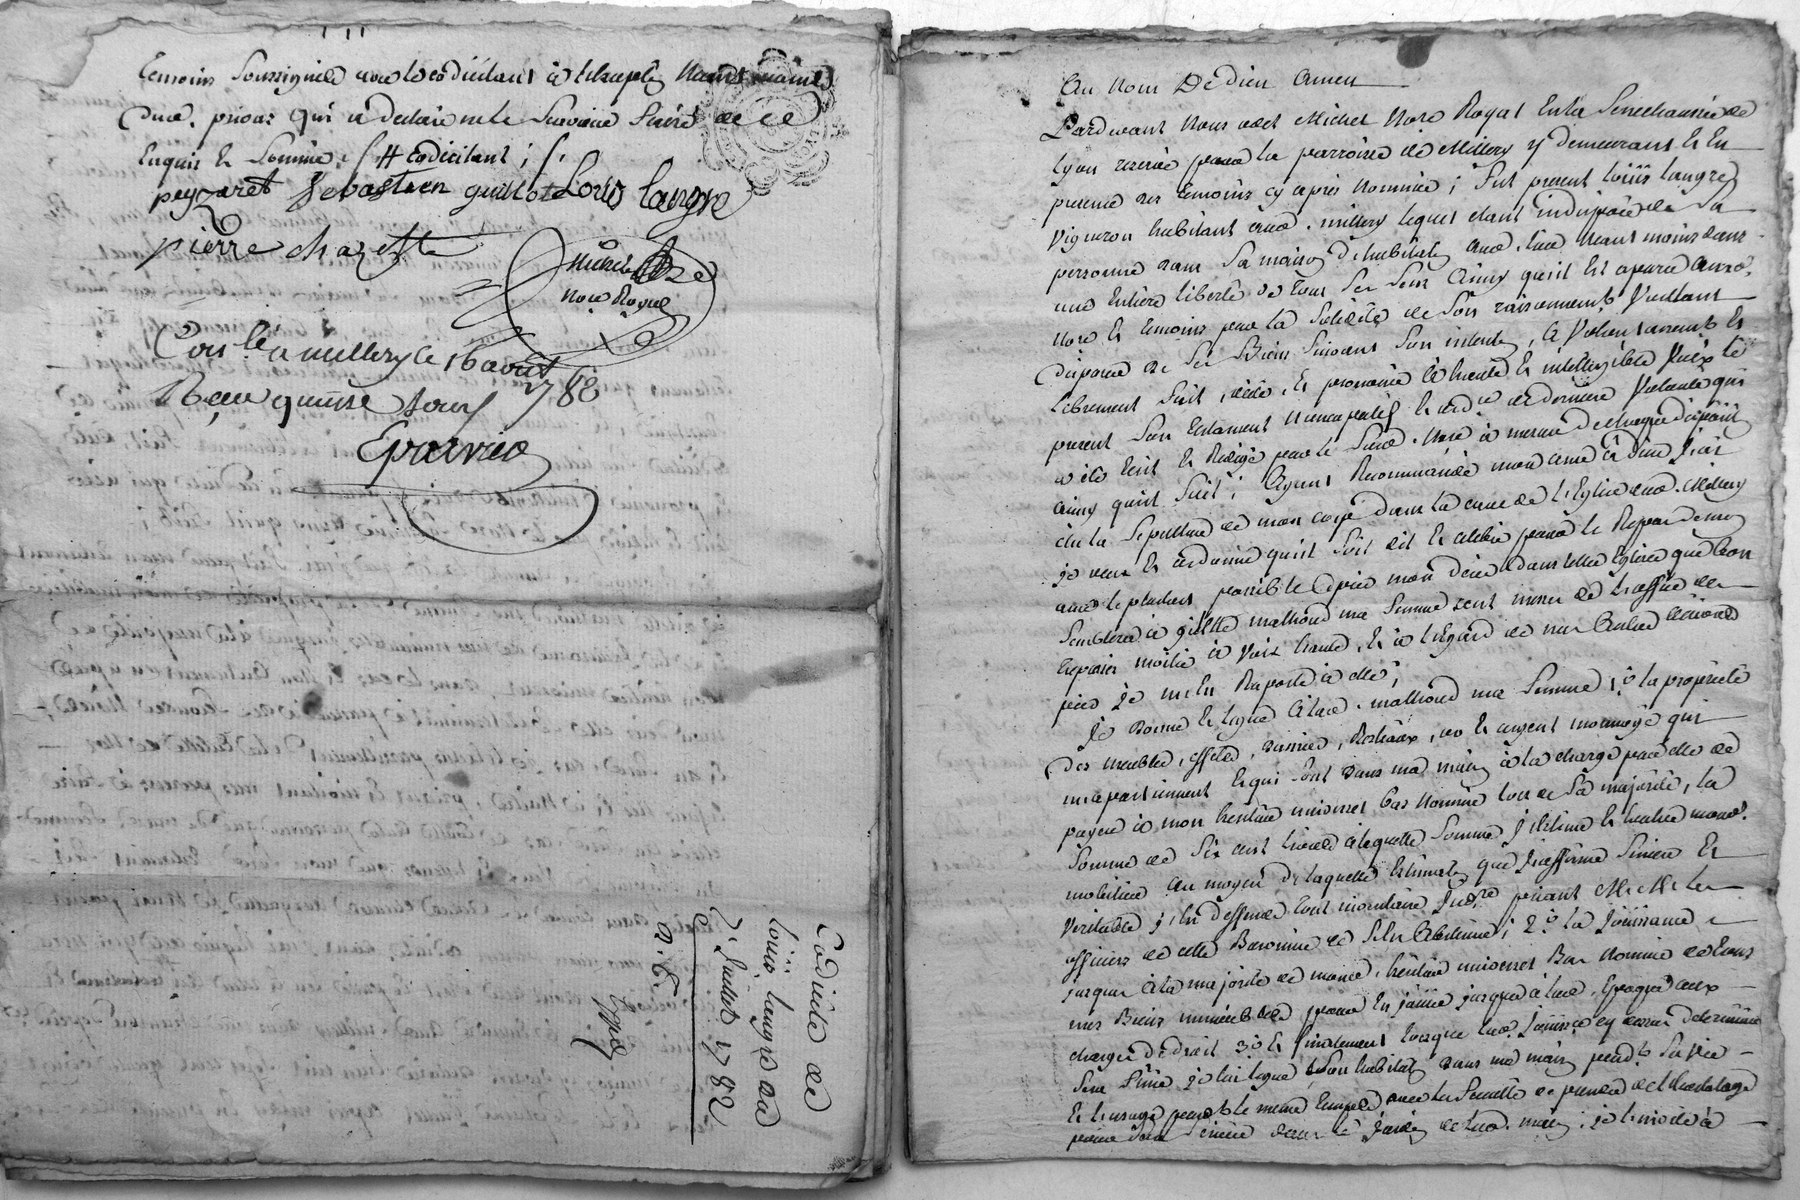 temoins soussignés avec le codicilant à l'exception
qui a declaré ne le savoir faire de ce
Enquis et sommé ; codicilant ;
peyzaret Sebastien guillot Louis langre
pierre chazette
Michel
Nore Royal
Con.lé a millery le 16 aout
1788
Reçu quinse sous
Eparvier
Codicile de
Louis langre du
7. Juillet 1782
Au Nom De dieu Amen
Pardevant Nous Michel Nore Royal En la Senechaussée de
Lyon reservé pour la parroisse de Millery y demeurant et En
presence des temoins cy après Nommés ; fut present Louis langre
vigneron habitant aud. millery lequel étant indisposé de sa
personne dans sa maison d'habitation aud. lieu neant moins dans
une Entiere liberté de tous ses sens Ainsy qu'il Est aparu aud.
Nore Et temoins par la solidité de son raisonnement voulant
disposer de ses Biens suivant son intention, A volontairement Et
librement fait, dicté, Et prononcé à haute Et intelligible voix le
present son testament Nuncupatif Et ord.re de derniere volonté qui
a été Ecrit Et Redigé par le sud. Nore à mesure
Ainsy qu'il suit ; Ayant Recommandé mon ame à dieu
élu la sepulture de mon corps dans la cure de l'Eglise aud. Millery
je veux Et ordonne qu'il soit dit Et celebré pour le Repos de mon
ame le plutôt possible après mon décès dans telle Eglise que bon
semblera à gilette mathoud ma femme cent messes de
moitié à voix haute, Et à l'Egard de mes autres œuvres
pies je m'en Raporte à elle ;
Je donne Et legue à lad. mathoud ma femme 1.° la propriété
des meubles, effets, danrées, Bestiaux, or Et argent monnoyé qui
m'apartiennent Et qui sont dans ma maison à la charge par elle de
payer à mon heritier universel bas Nommé lors de sa majorité, la
somme de six cent livres à laquelle somme j'Estime Et
mobiliere au moyen de laquelle Estimation que j'affirme sincere Et
veritable j'En deffends tout inventaire priant MM. les
officiers de cette Baronnie de s'En Abstenir ; 2.° la jouissance
jusques à la majorité de mond. heritier universel Bas Nommé de tous
mes Biens immeubles pour En jouir jusques à lad. Epoque aux
charges de droit 3.° Et finalement lorsque lad. jouissance cy dessus determinée
sera finie je lui legue son habitation dans ma maison pend.t sa vie
Et l'usage pend.t le meme temps avec la faculté de prendre de
dans le jardin de lad. maison